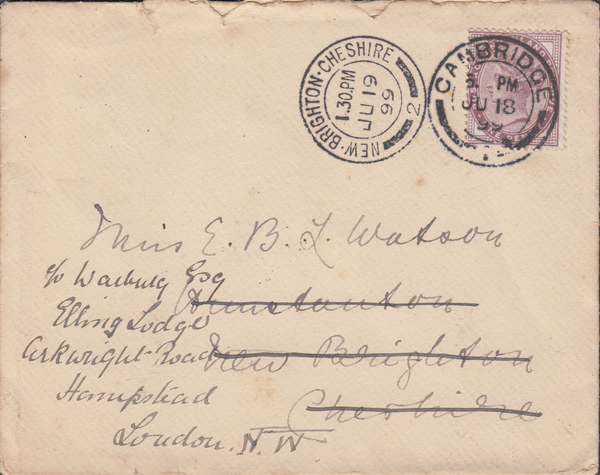 NEW-BRIGHTON-CHESHIRE
1.30PM
JU 19
99
2
CAMBRIDGE
PM
JU 18
99
Miss E. B. L. Watson
c/o Warburg Esq
Hunstanton
Elling Lodge
Arkwright Road
New Brighton
Hampstead
Cheshire
London. N.W